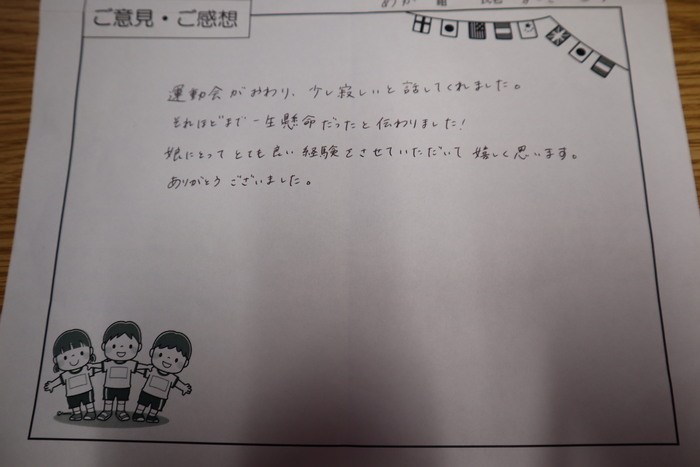 ご意見・ご感想
運動会がおわり、少し寂しいと話してくれました。
それほどまで一生懸命だったと伝わりました!
娘にとってとても良い経験をさせていただいて嬉しく思います。
ありがとうございました。